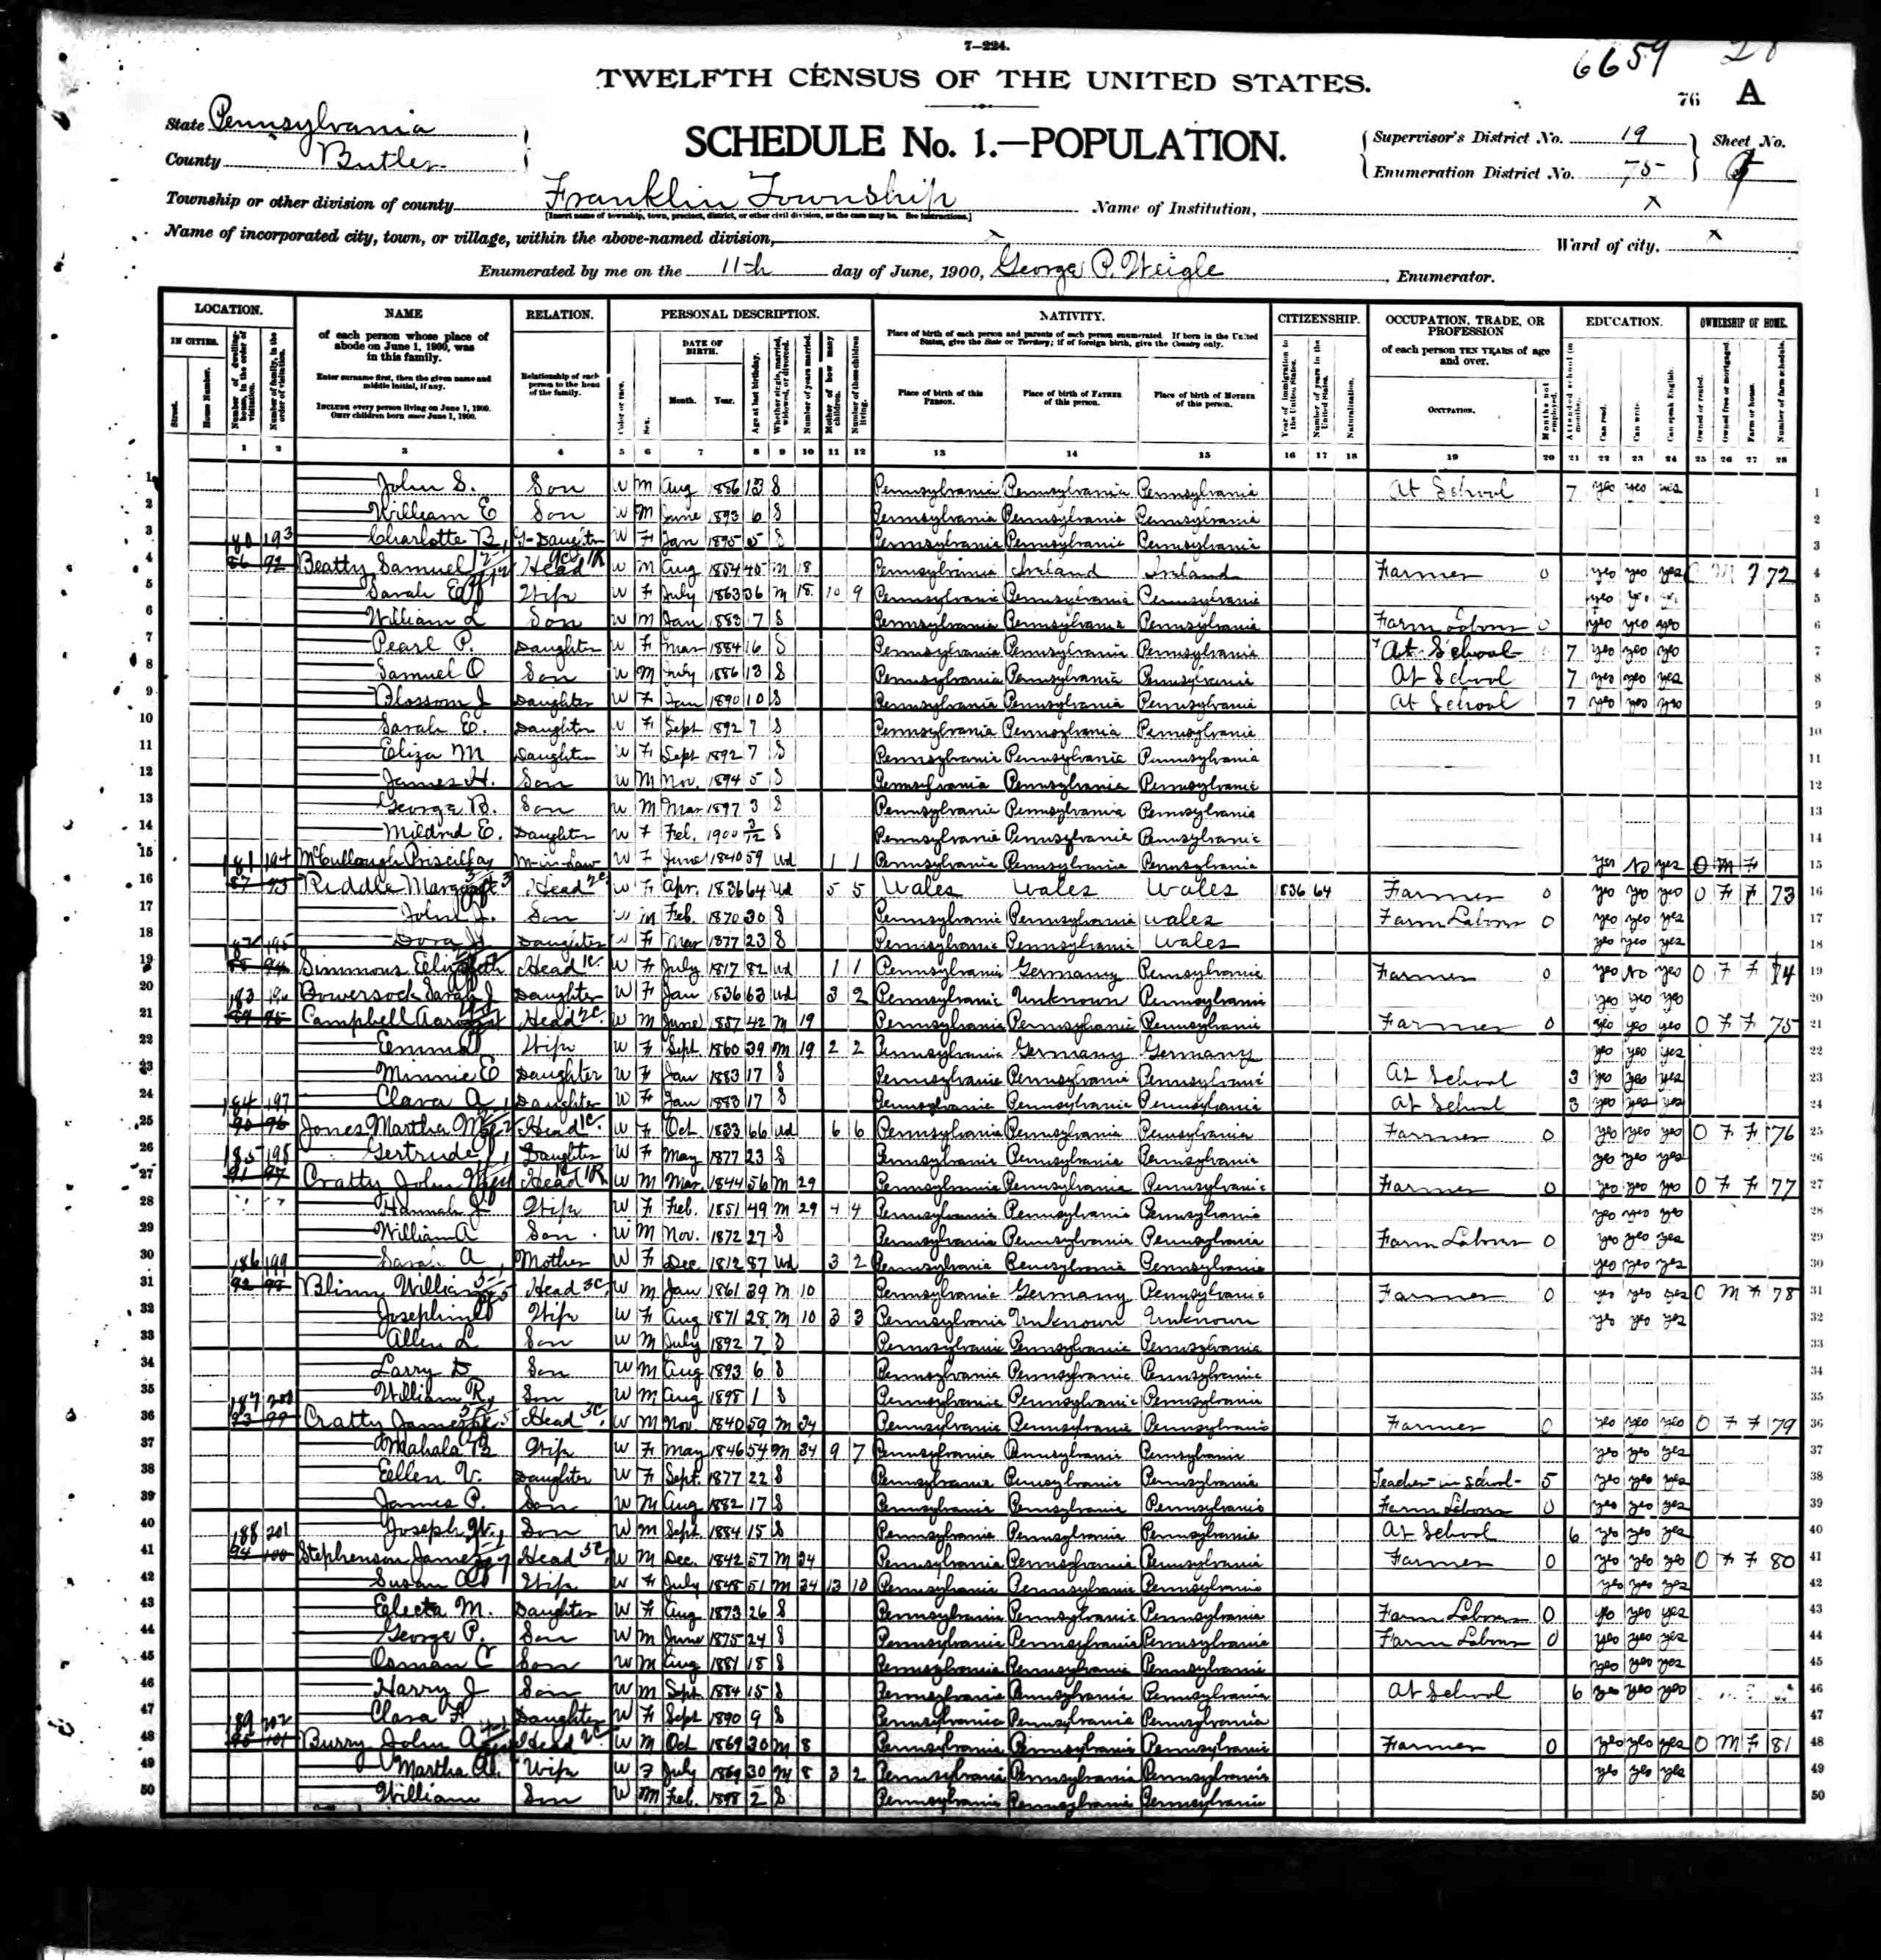 7—224.
6659
TWELFTH CENSUS OF THE UNITED STATES.
76 A
State Pennsylvania
County Butler
SCHEDULE No. 1.—POPULATION.
Supervisor's District No. 19
Enumeration District No. 75
Sheet No.
Township or other division of county Franklin Township
[Insert name of township, town, precinct, district, or other civil division, as the case may be. See instructions.]
Name of Institution, x
Name of incorporated city, town, or village, within the above-named division, x
Ward of city, x
Enumerated by me on the 11th day of June, 1900, George P. Weigle, Enumerator.
LOCATION. NAME RELATION. PERSONAL DESCRIPTION. NATIVITY. CITIZENSHIP. OCCUPATION, TRADE, OR PROFESSION EDUCATION. OWNERSHIP OF HOME.
1 John S. Son W M Aug 1886 13 S Pennsylvania Pennsylvania Pennsylvania At School 7 yes yes yes 1
2 William E Son W M June 1893 6 S Pennsylvania Pennsylvania Pennsylvania 2
3 180 193 Charlotte B. G-Daughter W F Jan 1895 5 S Pennsylvania Pennsylvania Pennsylvania 3
4 86 92 Beatty Samuel Head W M Aug 1854 45 M 18 Pennsylvania Ireland Ireland Farmer 0 yes yes yes O M F 72 4
5 Sarah E Wife W F July 1863 36 M 18 10 9 Pennsylvania Pennsylvania Pennsylvania yes 5
6 William L Son W M Jan 1883 17 S Pennsylvania Pennsylvania Pennsylvania Farm Labor 0 yes yes yes 6
7 Pearl P. Daughter W F Mar 1884 16 S Pennsylvania Pennsylvania Pennsylvania At School 7 yes yes yes 7
8 Samuel O Son W M July 1886 13 S Pennsylvania Pennsylvania Pennsylvania At School 7 yes yes yes 8
9 Blossom J Daughter W F Jan 1890 10 S Pennsylvania Pennsylvania Pennsylvania At School 7 yes yes yes 9
10 Sarah E. Daughter W F Sept 1892 7 S Pennsylvania Pennsylvania Pennsylvania 10
11 Eliza M Daughter W F Sept 1892 7 S Pennsylvania Pennsylvania Pennsylvania 11
12 James H. Son W M Nov. 1894 5 S Pennsylvania Pennsylvania Pennsylvania 12
13 George B. Son W M Mar 1897 3 S Pennsylvania Pennsylvania Pennsylvania 13
14 Mildred E. Daughter W F Feb. 1900 3/12 S Pennsylvania Pennsylvania Pennsylvania 14
15 181 194 McCullough Priscilla M-in-Law W F June 1840 59 Wd 1 1 Pennsylvania Pennsylvania Pennsylvania yes No yes O M F 15
16 87 93 Riddle Margaret Head W F Apr. 1836 64 Wd 5 5 Wales Wales Wales 1836 64 Farmer 0 yes yes yes O F F 73 16
17 John Son W M Feb. 1870 30 S Pennsylvania Pennsylvania Wales Farm Labor 0 yes yes yes 17
18 182 195 Dora Daughter W F Mar 1877 23 S Pennsylvania Pennsylvania Wales yes yes yes 18
19 88 94 Simmons Elizabeth Head W F July 1817 82 Wd 1 1 Pennsylvania Germany Pennsylvania Farmer 0 yes No yes O F F 74 19
20 183 Bowersock Sarah J Daughter W F Jan 1836 63 Wd 3 2 Pennsylvania Unknown Pennsylvania yes yes yes 20
21 89 95 Campbell Aaron Head W M June 1857 42 M 19 Pennsylvania Pennsylvania Pennsylvania Farmer 0 yes yes yes O F F 75 21
22 Emma Wife W F Sept 1860 39 M 19 2 2 Pennsylvania Germany Germany yes yes yes 22
23 Minnie E Daughter W F Jan 1883 17 S Pennsylvania Pennsylvania Pennsylvania At School 3 yes yes yes 23
24 184 197 Clara A Daughter W F Jan 1883 17 S Pennsylvania Pennsylvania Pennsylvania At School 3 yes yes yes 24
25 90 96 Jones Martha M Head W F Oct 1833 66 Wd 6 6 Pennsylvania Pennsylvania Pennsylvania Farmer 0 yes yes yes O F F 76 25
26 185 198 Gertrude Daughter W F May 1877 23 S Pennsylvania Pennsylvania Pennsylvania yes yes yes 26
27 91 97 Cratty John Head W M Mar. 1844 56 M 29 Pennsylvania Pennsylvania Pennsylvania Farmer 0 yes yes yes O F F 77 27
28 Hannah J Wife W F Feb. 1851 49 M 29 4 4 Pennsylvania Pennsylvania Pennsylvania yes yes yes 28
29 William A Son W M Nov. 1872 27 S Pennsylvania Pennsylvania Pennsylvania Farm Labor 0 yes yes yes 29
30 186 199 Sarah A Mother W F Dec 1812 87 Wd 3 2 Pennsylvania Pennsylvania Pennsylvania yes yes yes 30
31 92 98 Blinn William Head W M Jan 1861 39 M 10 Pennsylvania Germany Pennsylvania Farmer 0 yes yes yes O M F 78 31
32 Josephine Wife W F Aug 1871 28 M 10 3 3 Pennsylvania Unknown Unknown yes yes yes 32
33 Allen L Son W M July 1892 7 S Pennsylvania Pennsylvania Pennsylvania 33
34 Larry D Son W M Aug 1893 6 S Pennsylvania Pennsylvania Pennsylvania 34
35 187 200 William R Son W M Aug 1898 1 S Pennsylvania Pennsylvania Pennsylvania 35
36 93 99 Cratty James Head W M Nov. 1840 59 M 34 Pennsylvania Pennsylvania Pennsylvania Farmer 0 yes yes yes O F F 79 36
37 Mahala B Wife W F May 1846 54 M 34 9 7 Pennsylvania Pennsylvania Pennsylvania yes yes yes 37
38 Ellen V. Daughter W F Sept. 1877 22 S Pennsylvania Pennsylvania Pennsylvania Teacher in School 5 yes yes yes 38
39 James P. Son W M Aug 1882 17 S Pennsylvania Pennsylvania Pennsylvania Farm Labor 0 yes yes yes 39
40 188 201 Joseph W. Son W M Sept 1884 15 S Pennsylvania Pennsylvania Pennsylvania At School 6 yes yes yes 40
41 94 100 Stephenson James Head W M Dec. 1842 57 M 34 Pennsylvania Pennsylvania Pennsylvania Farmer 0 yes yes yes O F F 80 41
42 Susan Wife W F July 1848 51 M 34 13 10 Pennsylvania Pennsylvania Pennsylvania yes yes yes 42
43 Electa M. Daughter W F Aug 1873 26 S Pennsylvania Pennsylvania Pennsylvania Farm Labor 0 yes yes yes 43
44 George P. Son W M June 1875 24 S Pennsylvania Pennsylvania Pennsylvania Farm Labor 0 yes yes yes 44
45 Osman C Son W M Aug 1881 18 S Pennsylvania Pennsylvania Pennsylvania yes yes yes 45
46 Harry J Son W M Sept 1884 15 S Pennsylvania Pennsylvania Pennsylvania At School 6 yes yes yes 46
47 189 202 Clara Daughter W F Sept 1890 9 S Pennsylvania Pennsylvania Pennsylvania 47
48 95 101 Burry John A Head W M Oct 1869 30 M 8 Pennsylvania Pennsylvania Pennsylvania Farmer 0 yes yes yes O M F 81 48
49 Martha Wife W F July 1869 30 M 8 3 2 Pennsylvania Pennsylvania Pennsylvania yes yes yes 49
50 William Son W M Feb. 1898 2 S Pennsylvania Pennsylvania Pennsylvania 50